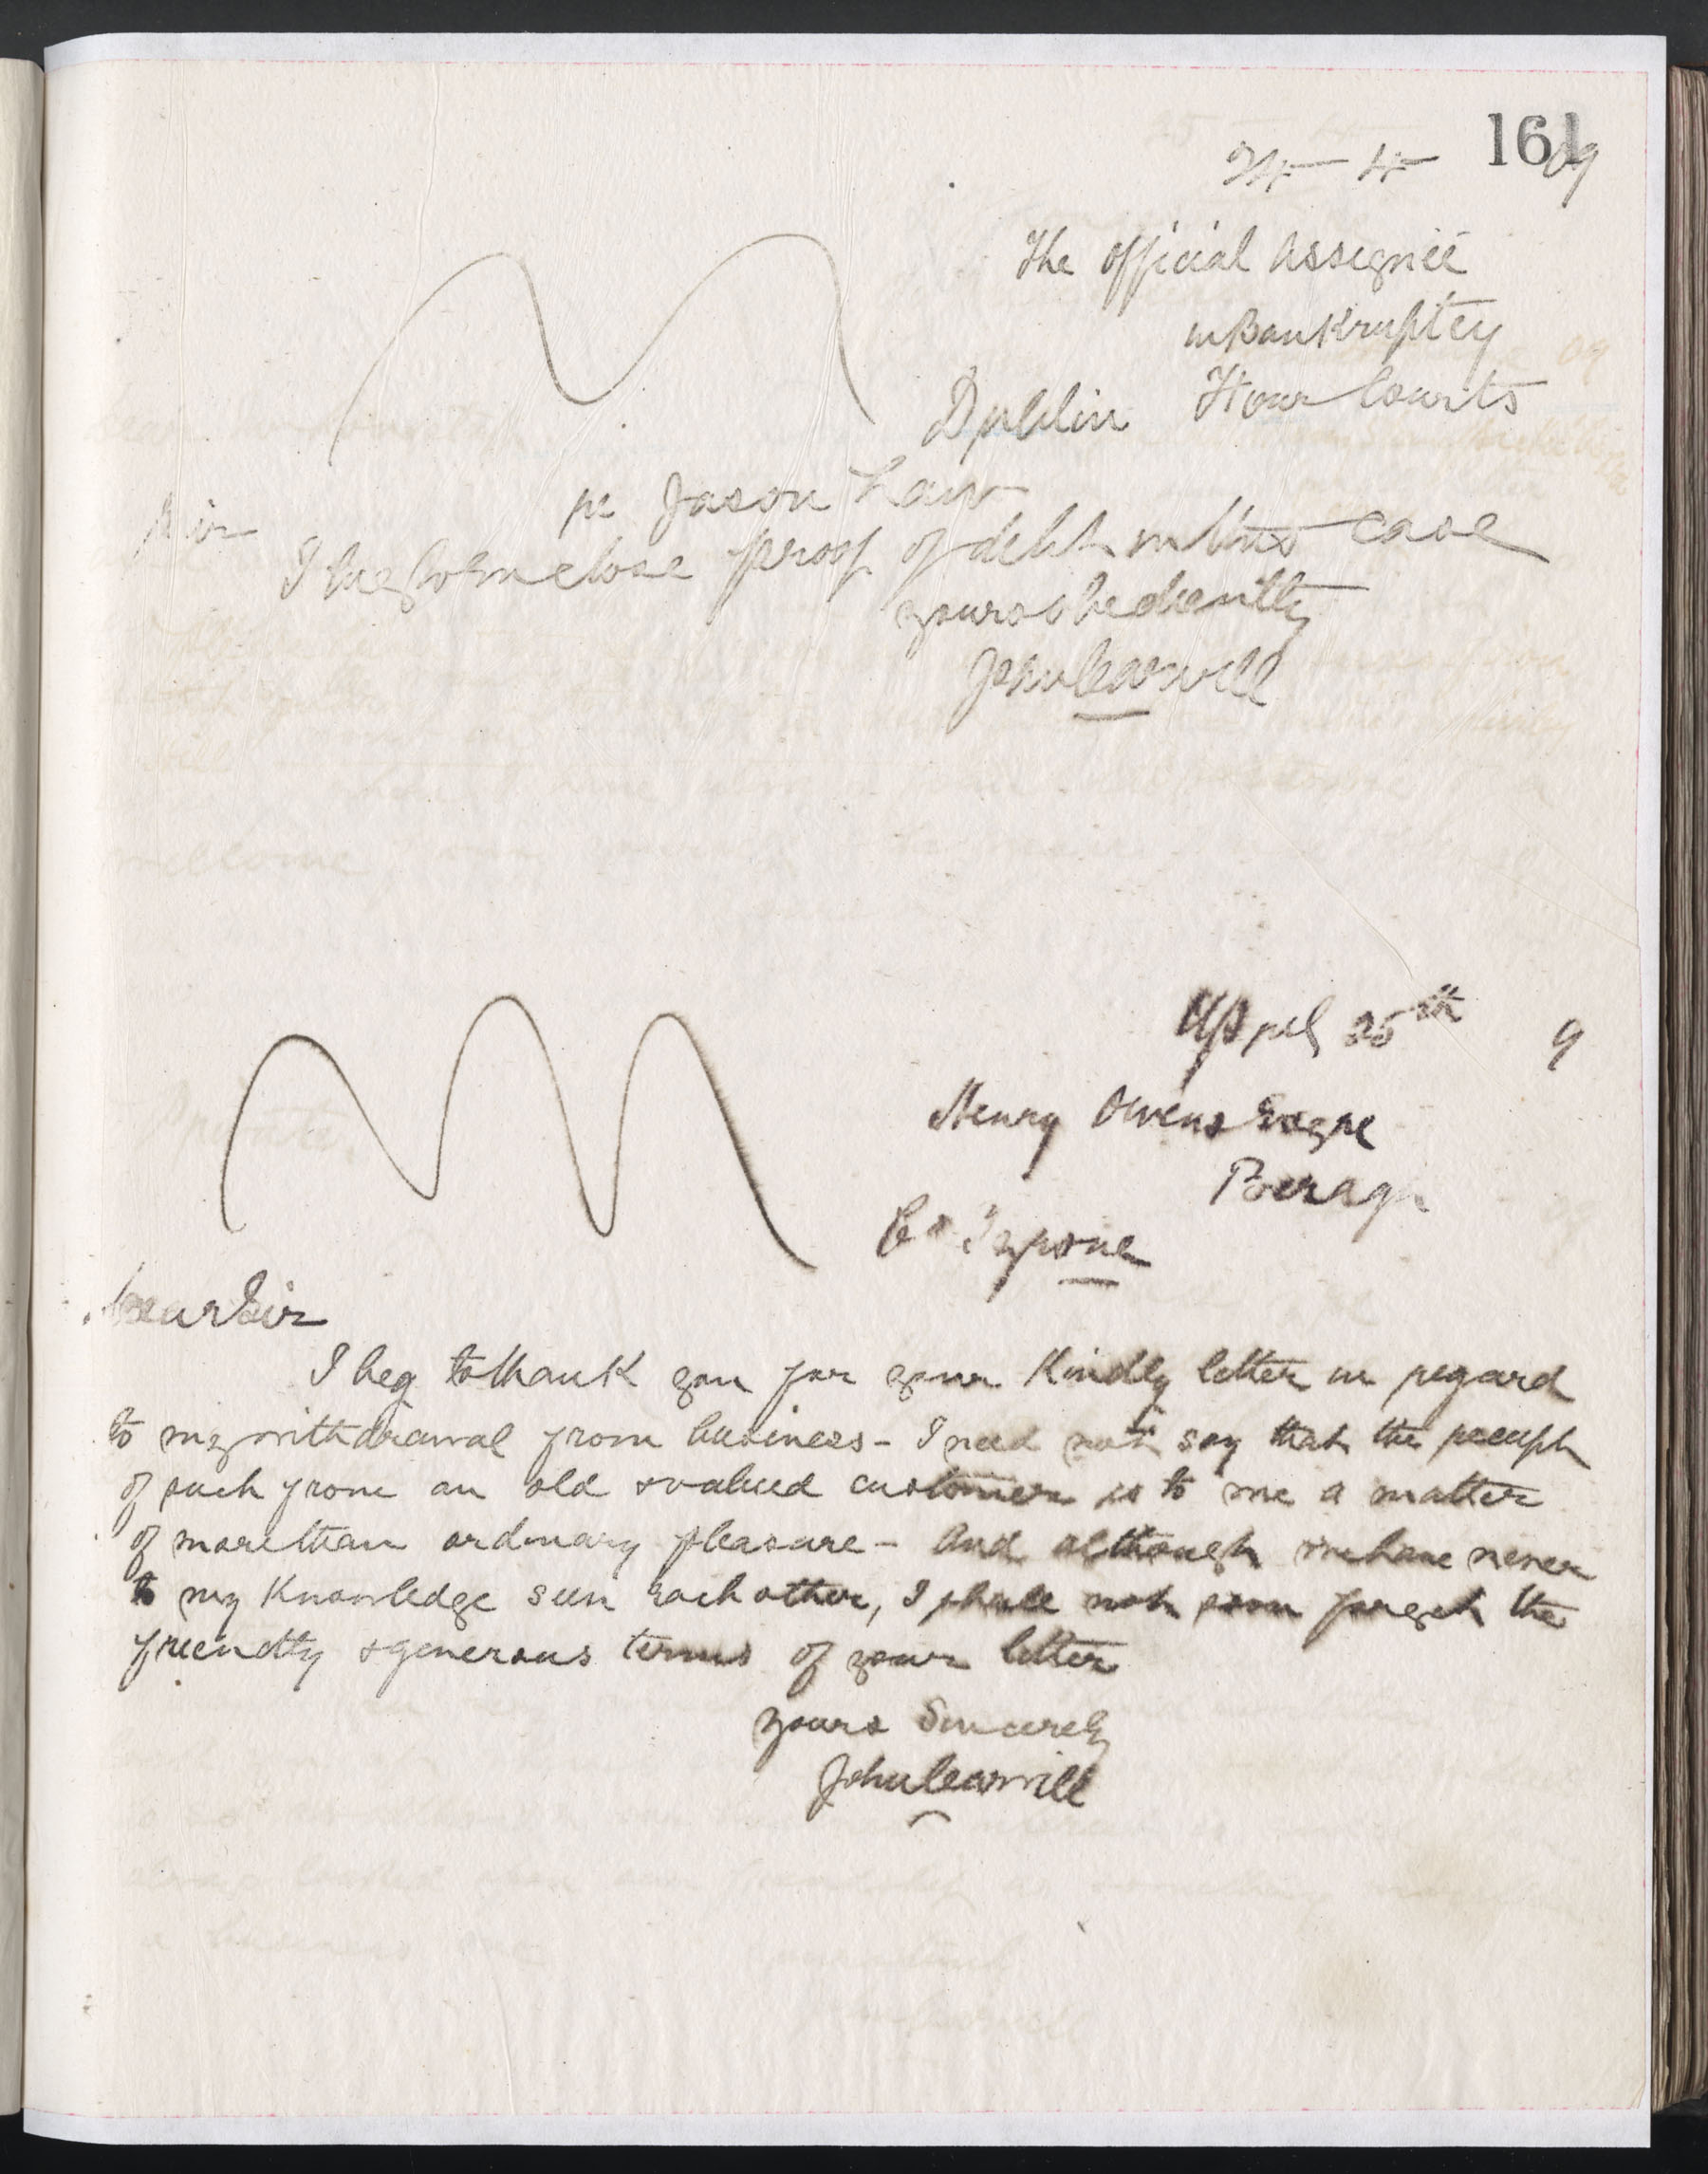 161
24 — 4 — 09
The Official Assignee
in Bankruptcy
Four Courts
Dublin
re Jason Law
Sir
I beg to enclose proof of debt in this case
yours obediently
John Carvill
April 25th 9
Henry Owens Esqre
Beragh
Co Tyrone
Dear Sir
I beg to thank you for your Kindly letter in regard
to my withdrawal from business – I need not say that the receipt
of such from an old & valued customer is to me a matter
of more than ordinary pleasure – And although we have never
to my Knowledge seen each other, I shall not soon forget the
friendly & generous terms of your letter
yours Sincerely
John Carvill